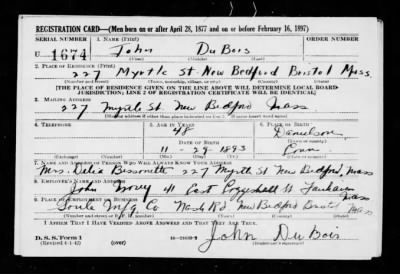 REGISTRATION CARD—(Men born on or after April 28, 1877 and on or before February 16, 1897)
SERIAL NUMBER 1. NAME (Print) ORDER NUMBER
U 1674 John Du Bois
2. PLACE OF RESIDENCE (Print)
227 Myrtle St New Bedford Bristol Mass.
[THE PLACE OF RESIDENCE GIVEN ON THE LINE ABOVE WILL DETERMINE LOCAL BOARD
JURISDICTION; LINE 2 OF REGISTRATION CERTIFICATE WILL BE IDENTICAL]
3. MAILING ADDRESS
227 Myrtle St. New Bedford Mass
[Mailing address if other than place indicated on line 2. If same insert word same]
4. TELEPHONE 5. AGE IN YEARS 6. PLACE OF BIRTH
48 Danielson
DATE OF BIRTH
11 - 29 - 1893 Conn
7. NAME AND ADDRESS OF PERSON WHO WILL ALWAYS KNOW YOUR ADDRESS
Mrs. Delia Bissonette 227 Myrtle St New Bedford, Mass
8. EMPLOYER'S NAME AND ADDRESS
John 41 East St Mass
9. PLACE OF EMPLOYMENT OR BUSINESS
Soule Mfg Co Nash Rd New Bedford Bristol Mass
I AFFIRM THAT I HAVE VERIFIED ABOVE ANSWERS AND THAT THEY ARE TRUE.
D. S. S. Form 1
(Revised 4-1-42) (over)
John Du Bois